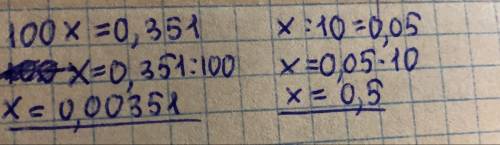 100x=0,351
x=0,351:100
x=0,00351
x:10=0,05
x=0,05·10
x=0,5